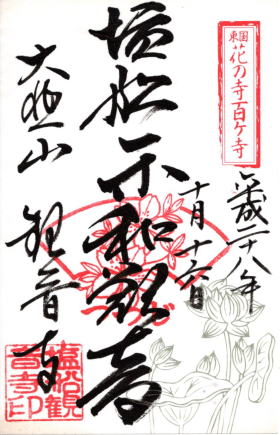 東国
花の寺百ケ寺
平成二八年
十月十六日
塩船平和観音
つつじ
大悲山 観音寺
塩船観
音寺印